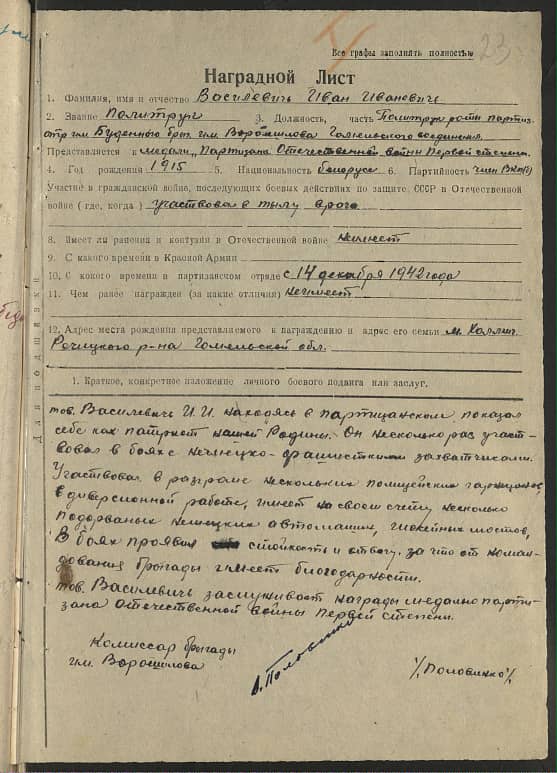 Все графы заполнять полностью
23
Наградной Лист
1. Фамилия, имя и отчество Василевич Иван Иванович
2. Звание Политрук 3. Должность, часть Политрук роты партиз.
отр. им. Буденного бриг. им. Ворошилова Гомельского соединения.
Представляется к медали „Партизана Отечественной войны Первой степени
4. Год рождения 1915 5. Национальность белорус 6. Партийность член ВКП(б)
Участие в гражданской войне, последующих боевых действиях по защите СССР в Отечественной
войне (где, когда) участвовал в тылу врага
8. Имеет ли ранения и контузии в Отечественной войне неимеет
9. С какого времени в Красной Армии
10. С какого времени в партизанском отряде с 14 декабря 1942 года
11. Чем ранее награжден (за какие отличия) неимеет
12. Адрес места рождения представляемого к награждению и адрес его семьи м. Холмич
Речицкого р-на Гомельской обл.
Для подшивки
1. Краткое, конкретное изложение личного боевого подвига или заслуг.
тов. Василевич И. И. находясь в партизанском показал
себе как патриот нашей Родины. Он несколько раз участ-
вовал в боях с немецко-фашисткими захватчиками.
Участвовал в разгроме нескольких полицейских гарнизонов,
в диверсионной работе, имеет на своем счету несколько
подорваных немецких автомашин, мостов,
В боях проявил стойкость и отвагу, за что от коман-
дования бригады имеет благодарности.
тов. Василевич заслуживает награды медалью парти-
зана Отечественной войны Первой степени.
Комиссар бригады
им. Ворошилова
В. Половинко
/Половинко/